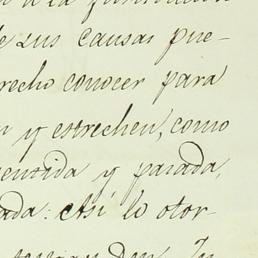 de sus causas pue-
recho conocer para
y estrechen, como
sentida y pasada,
ada: Así lo otor-